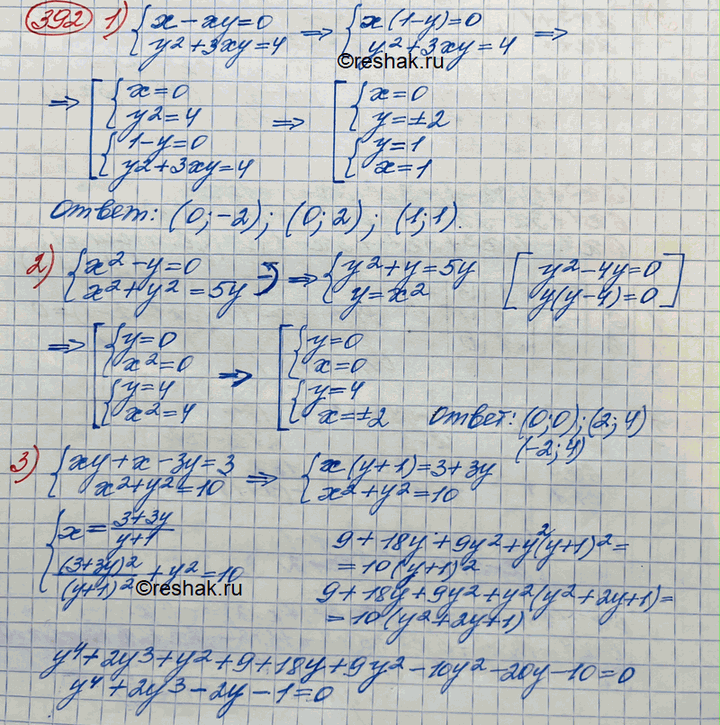 392 1) { x - xy = 0 ⇒ { x(1-y) = 0 ⇒
y² + 3xy = 4 y² + 3xy = 4
©reshak.ru
⇒ [ { x = 0 ⇒ [ { x = 0
y2 = 4 y = ±2
{ 1-y = 0 { y = 1
y2 + 3xy = 4 x = 1
Ответ: (0; -2); (0; 2); (1; 1).
2) { x² - y = 0 ⇒ { y² + y = 5y [ y² - 4y = 0 ]
x² + y² = 5y y = x² y(y-4) = 0
⇒ [ { y = 0 ⇒ [ { y = 0
x² = 0 x = 0
{ y = 4 { y = 4
x² = 4 x = ±2 Ответ: (0; 0); (2; 4)
(-2; 4)
3) { xy + x - 3y = 3 ⇒ { x(y+1) = 3 + 3y
x² + y² = 10 x² + y² = 10
{ x = (3+3y)/(y+1)
(3+3y)²/(y+1)² + y² = 10
©reshak.ru
9 + 18y + 9y² + y²(y+1)² =
= 10(y+1)²
9 + 18y + 9y² + y²(y² + 2y + 1) =
= 10(y² + 2y + 1)
y⁴ + 2y3 + y² + 9 + 18y + 9y² - 10y² - 20y - 10 = 0
y⁴ + 2y3 - 2y - 1 = 0